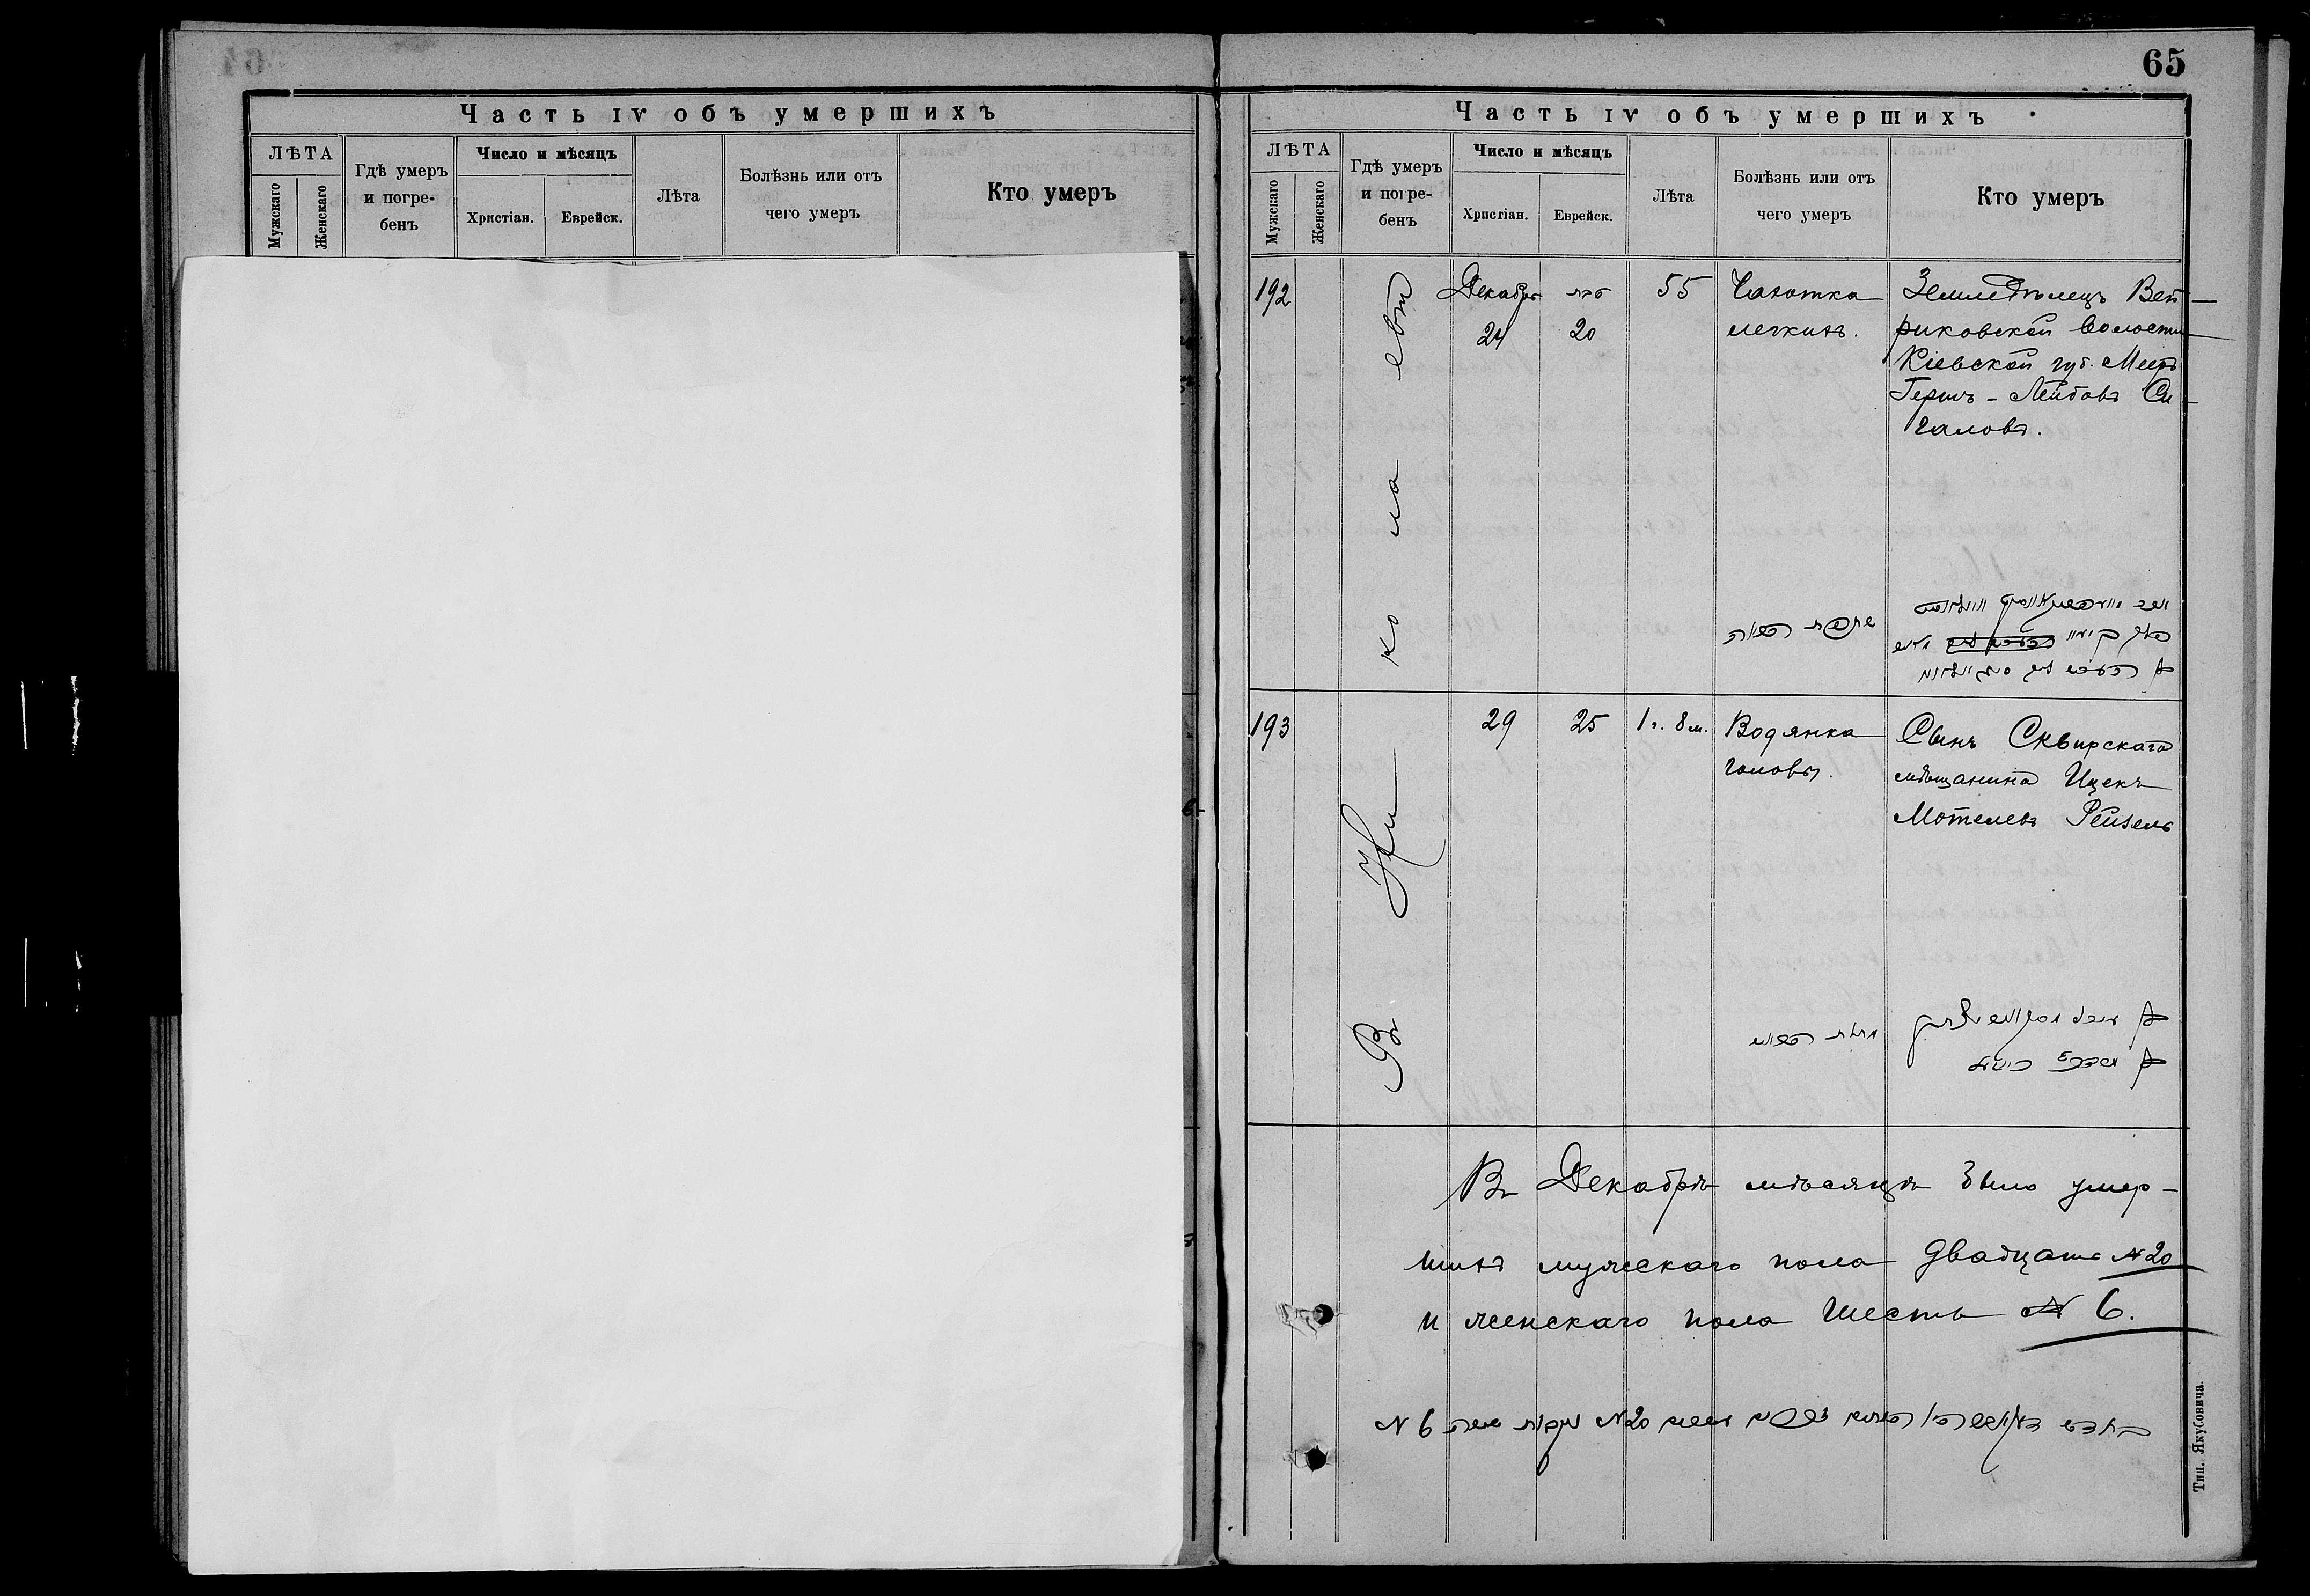 65
Часть IV объ умершихъ
ЛѢТА
Мужскаго
Женскаго
Гдѣ умеръ
и погре-
бенъ
Число и мѣсяцъ
Христіан.
Еврейск.
Лѣта
Болѣзнь или отъ
чего умеръ
Кто умеръ
Часть IV объ умершихъ
ЛѢТА
Мужскаго
Женскаго
Гдѣ умеръ
и погре-
бенъ
Число и мѣсяцъ
Христіан.
Еврейск.
Лѣта
Болѣзнь или отъ
чего умеръ
Кто умеръ
Въ Николаевѣ
192
Декабря
24
טבת
20
55
Чахотка
легкихъ.
Земледѣлецъ Вет-
риковской волости
Кіевской губ. Мееръ
Гершъ-Лейбовъ Си-
галовъ.
193
29
25
1 г. 8 м.
Водянка
головы.
Сынъ Сквирскаго
мѣщанина Ицекъ
Мотелевъ Рейзель
Въ Декабрѣ мѣсяцѣ было умер-
шихъ мужскаго пола двадцать № 20
и женскаго пола шесть № 6.
Тип. Якубовича.